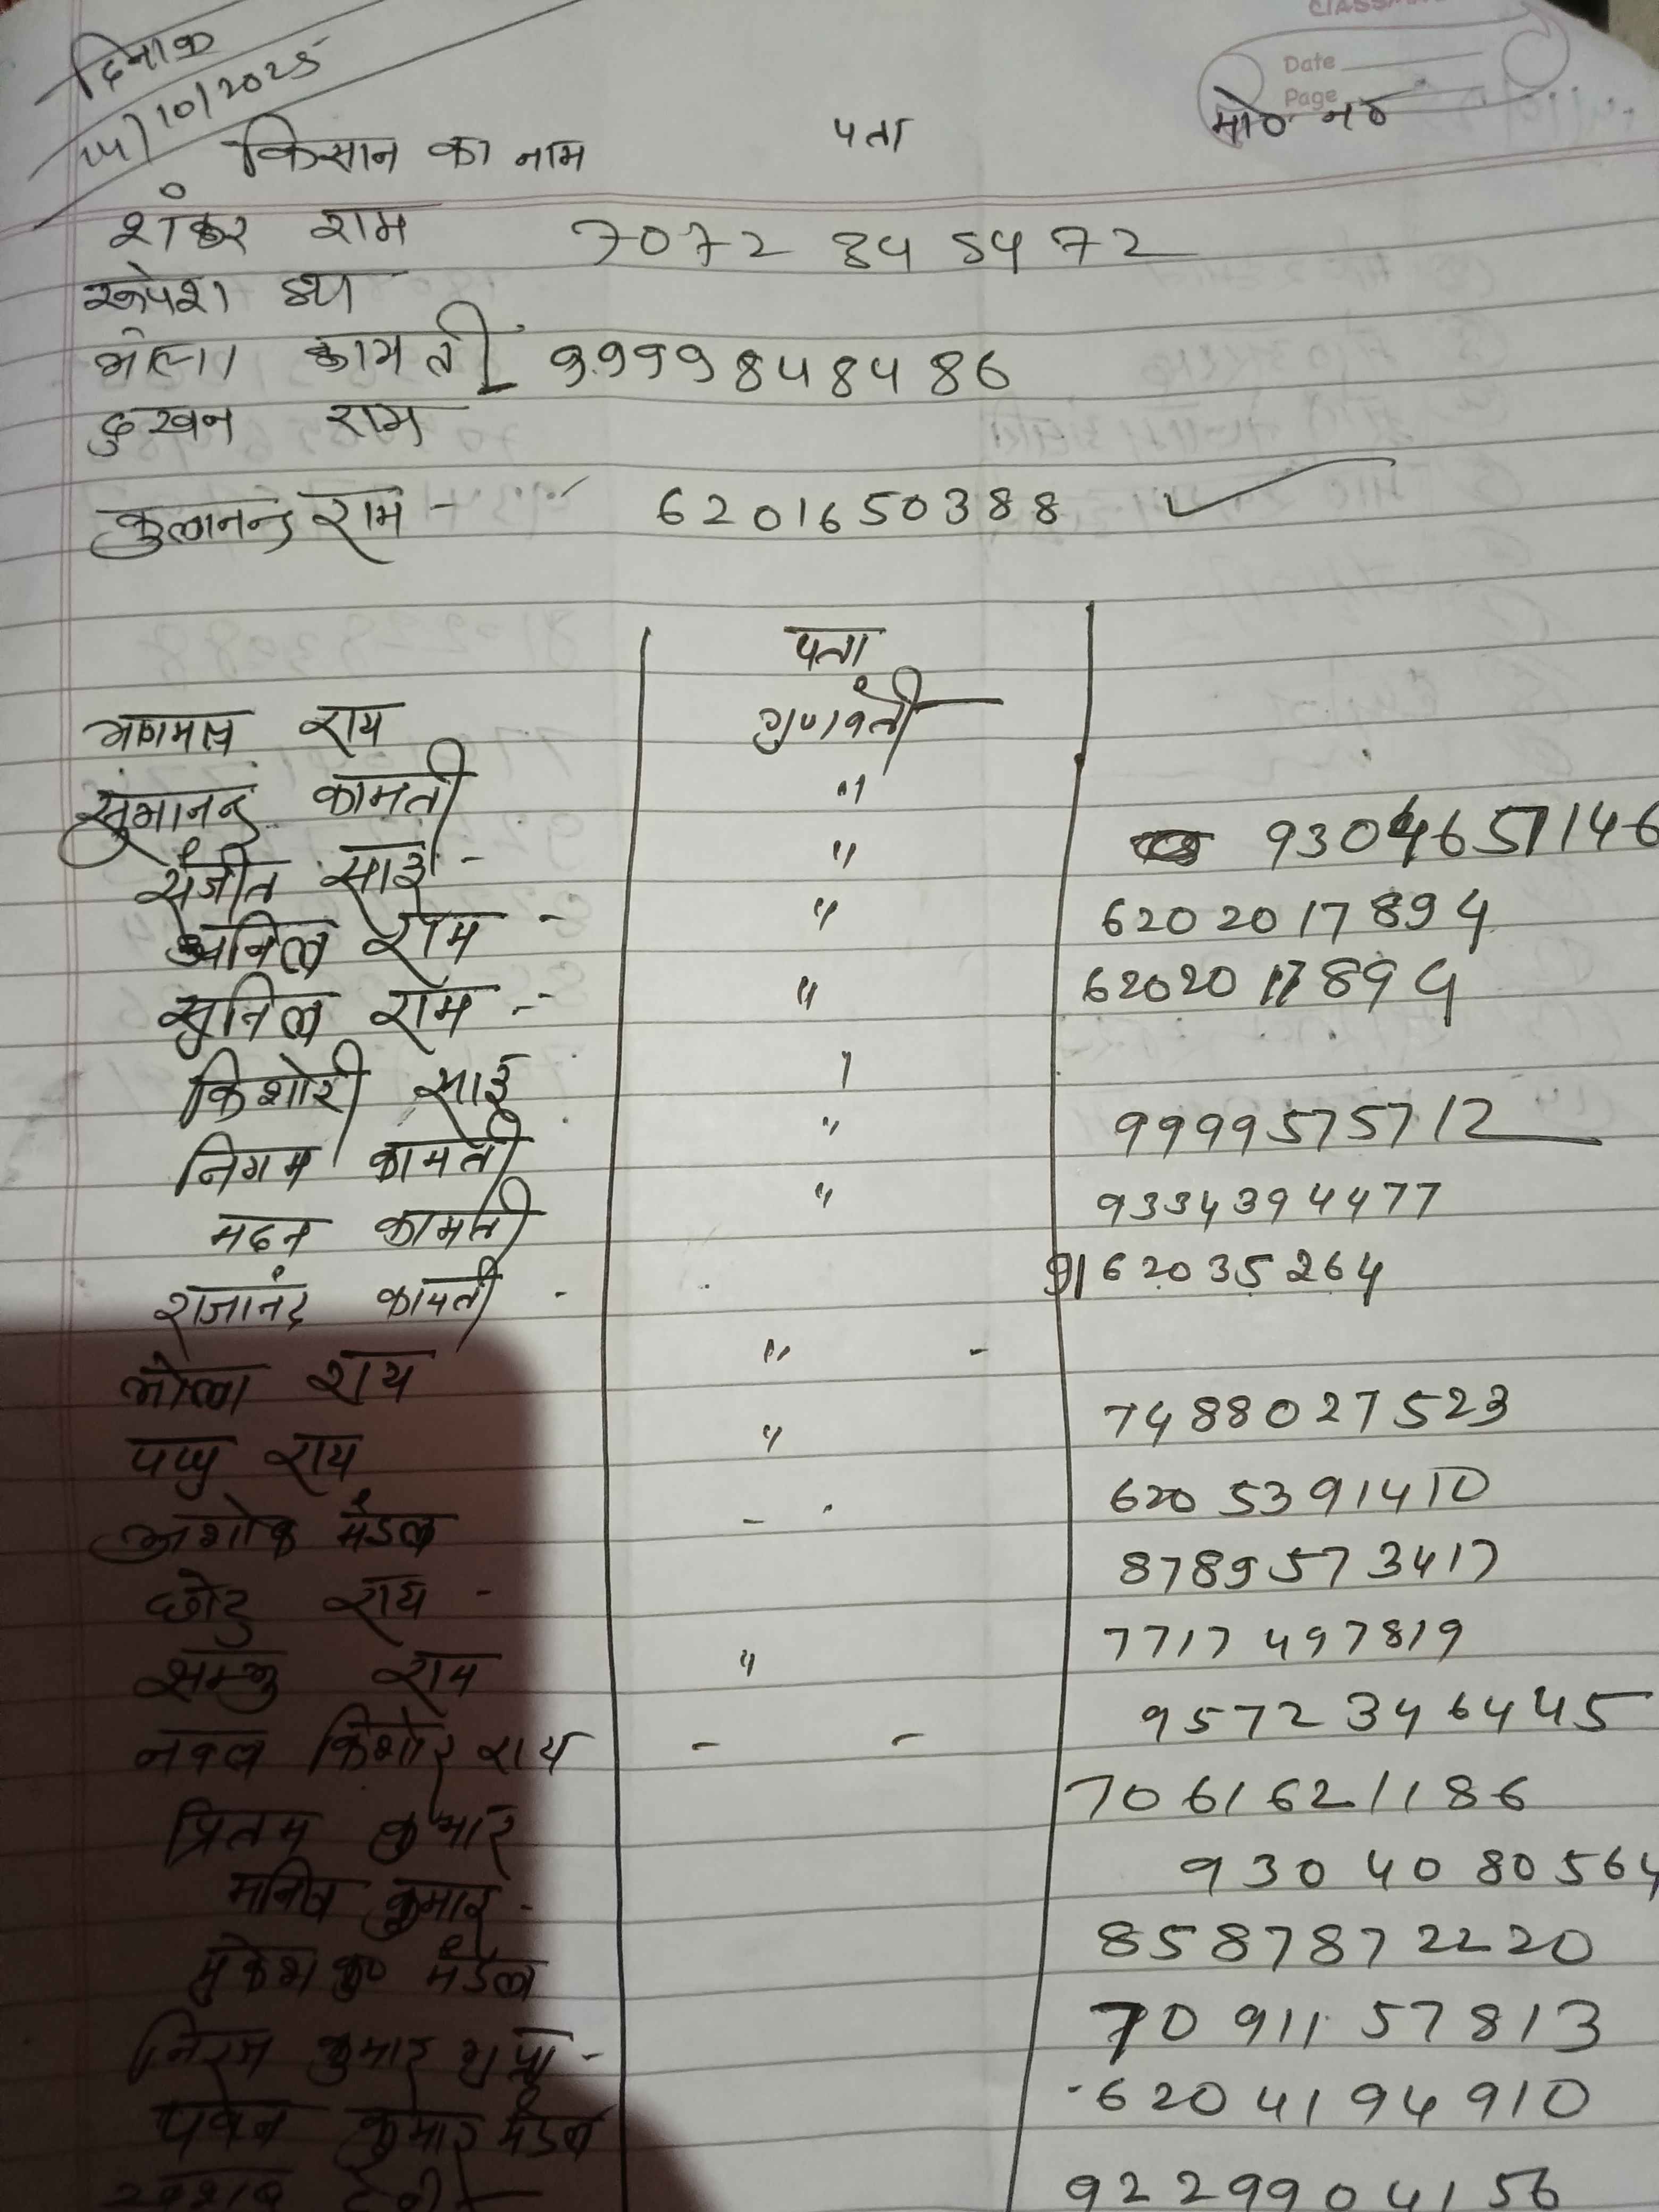 CLASSMATE
Date
Page
दिनांक
14/10/2025
किसान का नाम पता मो० न०
शंकर राम 7072845472
रूपेश झा
भोला कामती 9999848486
दुखन राम
कुलानन्द राम - 6201650388
पता
राय गुणवती
सुभानन्द कामती "
संजीत साई - " 9304657146
अनिल राम - " 6202017894
सुनिल राम - " 6202017894
किशोरी साई "
निगम कामती " 9999575712
मदन कामती " 9334394477
राजानंद कामती - 9162035264
भोला राय " -
पप्पु राय " 7488027523
अशोक मंडल - 6205391410
छोटु राय - 8789573417
सम्भु राय " 7717497819
नवल किशोर राय - - 9572346445
प्रितम कुमार 7061621186
मनिष कुमार - 9304080564
मुकेश कु० मंडल 8587872220
निरज कुमार गुप्ता - 7091157813
पवन कुमार मंडल 6204194910
देवी 9229904156